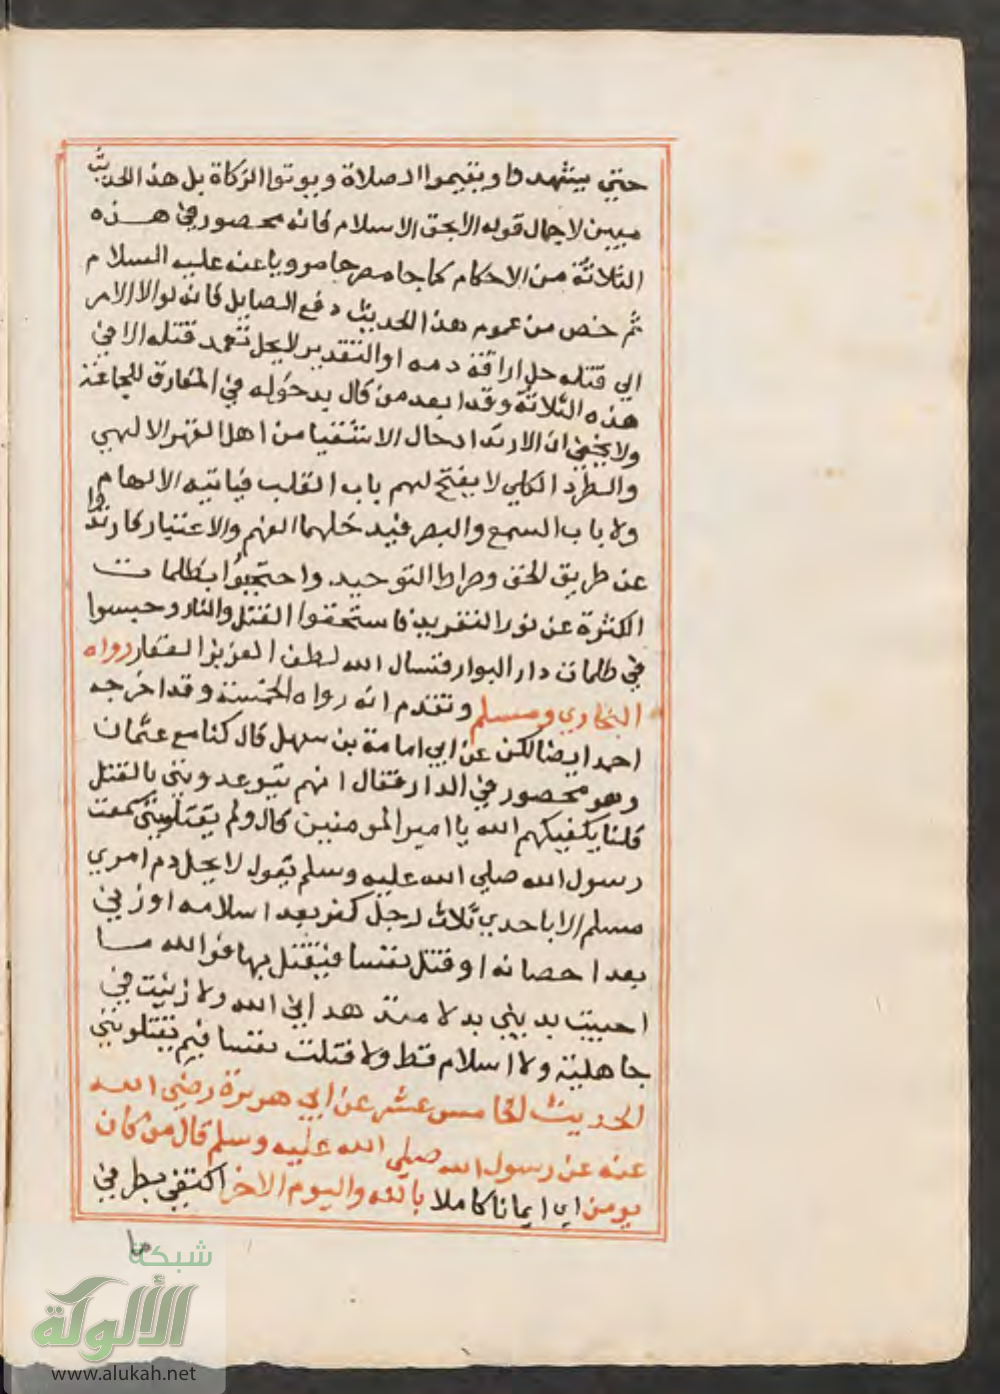 حتي يتشهدوا ويقيموا الصلاة ويوتوا الزكاة بل هذا الحديث
مبين لاجمال قوله الا بحق الاسلام فانه محصور في هذه
الثلاثة من الاحكام كما جا مصرحا مرويا عنه عليه السلام
ثم خص من عموم هذا الحديث دفع الصايل فانه لو ال الامر
الي قتله حل اراقة دمه او التقدير لا يحل تعمد قتله الا في
هذه الثلاثة وقد ابعد من قال بدخوله في المفارق للجماعة
ولا يخفي ان الارتداد حال الاشقيا من اهل القهر الالهي
والطرد الكلي لا يفتح لهم باب القلب فياتيه الالهام
ولا باب السمع والبصر فيدخلهما الفهم والاعتبار فارتدوا
عن طريق الحق وصراط التوحيد واحتجبوا بظلمات
الكثرة عن نور التفريد فاستحقوا القتل والنار وحبسوا
في ظلمات دار البوار فنسال الله لطف العزيز الغفار رواه
البخاري ومسلم وتقدم انه رواه الخمسة وقد اخرجه
احمد ايضا لكن عن ابي امامة بن سهل قال كنا مع عثمان
وهو محصور في الدار فقال انهم يتوعدونني بالقتل
قلنا يكفيكهم الله يا امير المومنين قال ولم يقتلونني سمعت
رسول الله صلي الله عليه وسلم يقول لا يحل دم امري
مسلم الا باحدي ثلاث رجل كفر بعد اسلامه او زني
بعد احصانه او قتل نفسا فيقتل بها فوالله ما
احببت بديني بدلا منذ هداني الله ولا زنيت في
جاهلية ولا اسلام قط ولا قتلت نفسا فبم يقتلونني
الحديث الخامس عشر عن ابي هريرة رضي الله
عنه عن رسول الله صلي الله عليه وسلم قال من كان
يومن اي ايمانا كاملا بالله واليوم الاخر اكتفي بطرفي
شبكة
الألوكة
www.alukah.net